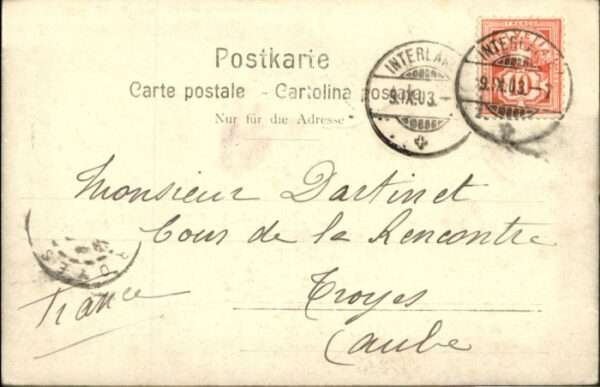 Postkarie
Carte postale - Cartolina postale
Nur für die Adresse
INTERLAK
9.IX.03.-
INTERLA
9.IX.03.-7
HELVETIA
10
Monsieur Dartinet
Cour de la Rencontre
Troyes
(aube
France